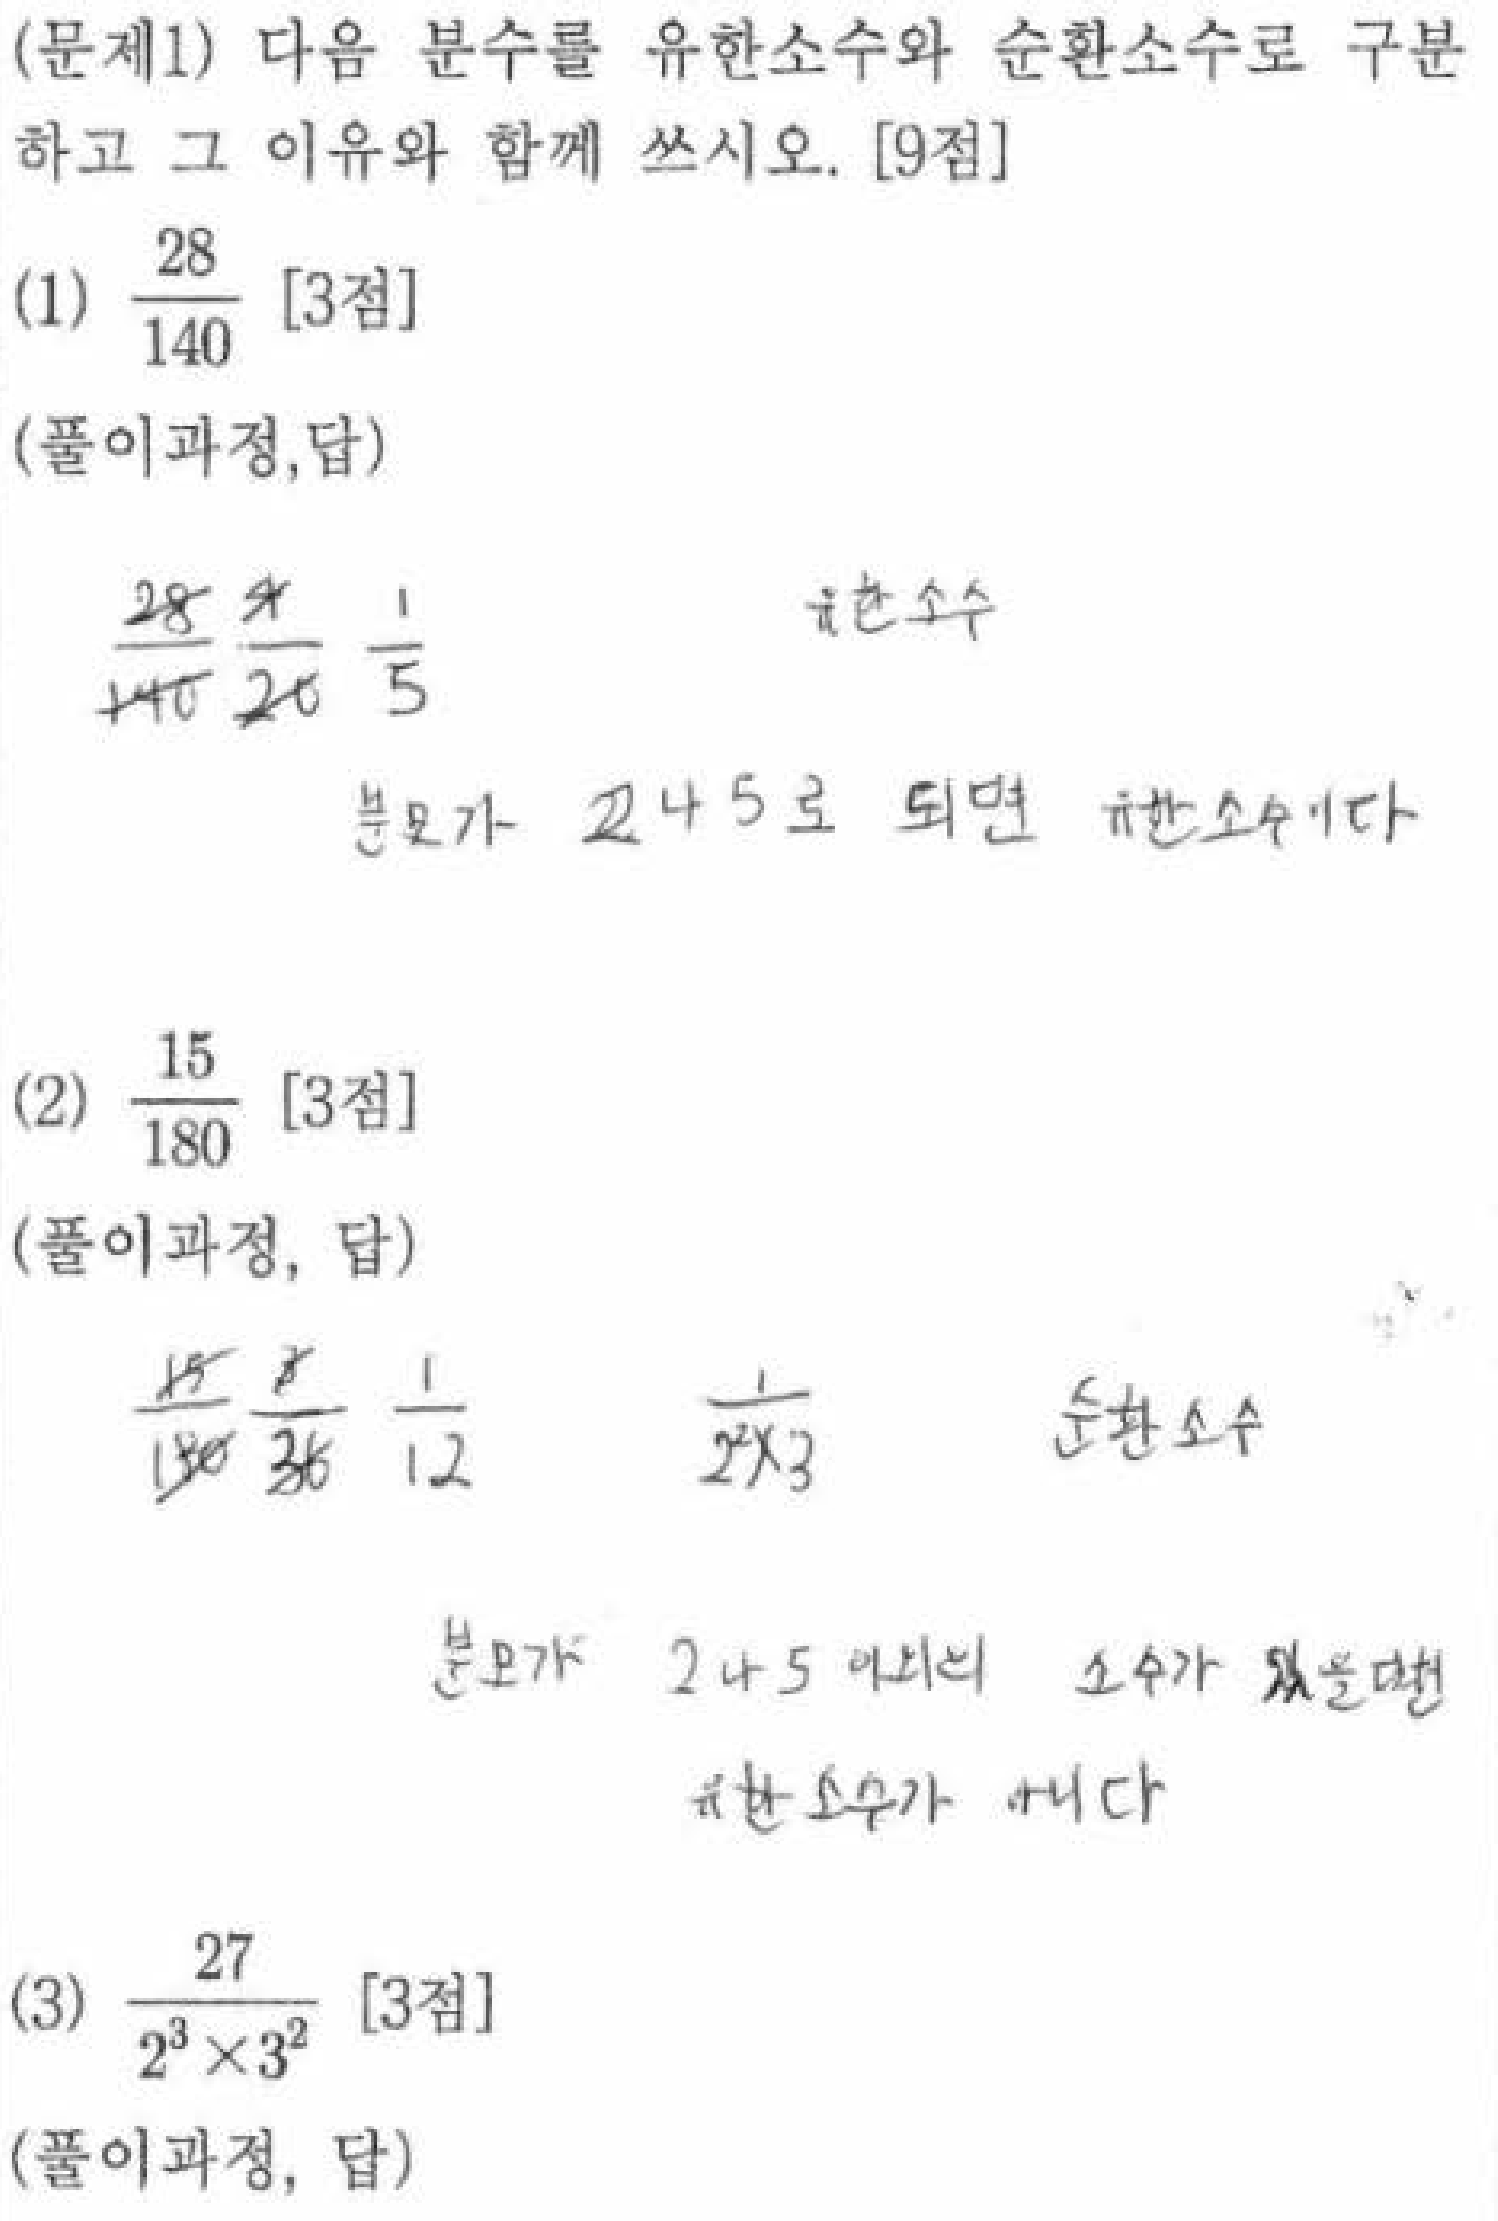 (문제1) 다음 분수를 유한소수와 순환소수로 구분
하고 그 이유와 함께 쓰시오. [9점]
(1) 28/140 [3점]
(풀이과정,답)
28/140 4/20 1/5 유한소수
분모가 2나 5로 되면 유한소수이다
(2) 15/180 [3점]
(풀이과정, 답)
15/180 3/36 1/12 1/2²×3 순환소수
분모가 2나 5 이외의 소수가 있을
유한소수가 아니다
(3) 27/2³×3² [3점]
(풀이과정, 답)